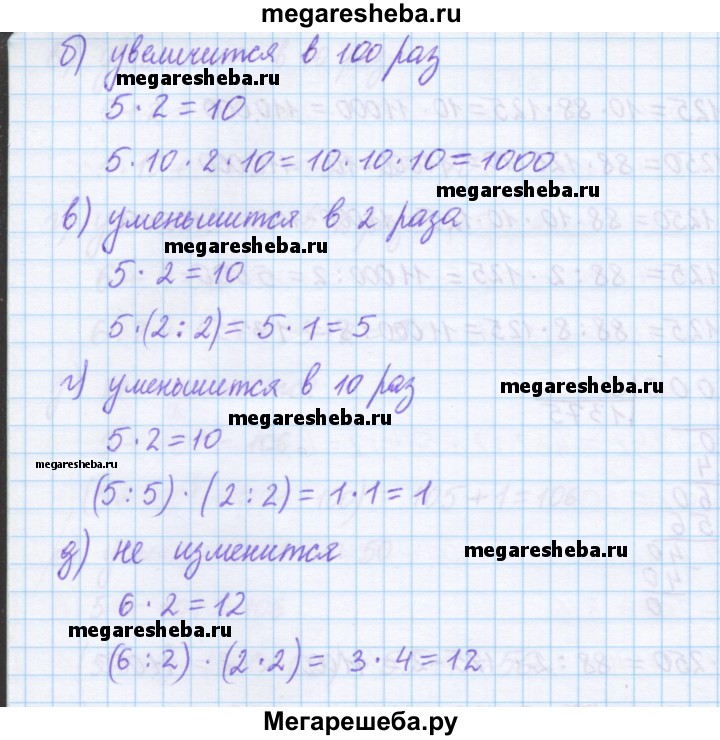 megaresheba.ru
б) увеличится в 100 раз
megaresheba.ru
5 · 2 = 10
5 · 10 · 2 · 10 = 10 · 10 · 10 = 1000
megaresheba.ru
в) уменьшится в 2 раза
megaresheba.ru
5 · 2 = 10
5 · (2 : 2) = 5 · 1 = 5
г) уменьшится в 10 раз
megaresheba.ru
megaresheba.ru
5 · 2 = 10
megaresheba.ru
(5 : 5) · (2 : 2) = 1 · 1 = 1
д) не изменится
megaresheba.ru
6 · 2 = 12
megaresheba.ru
(6 : 2) · (2 · 2) = 3 · 4 = 12
Мегарешеба.ру